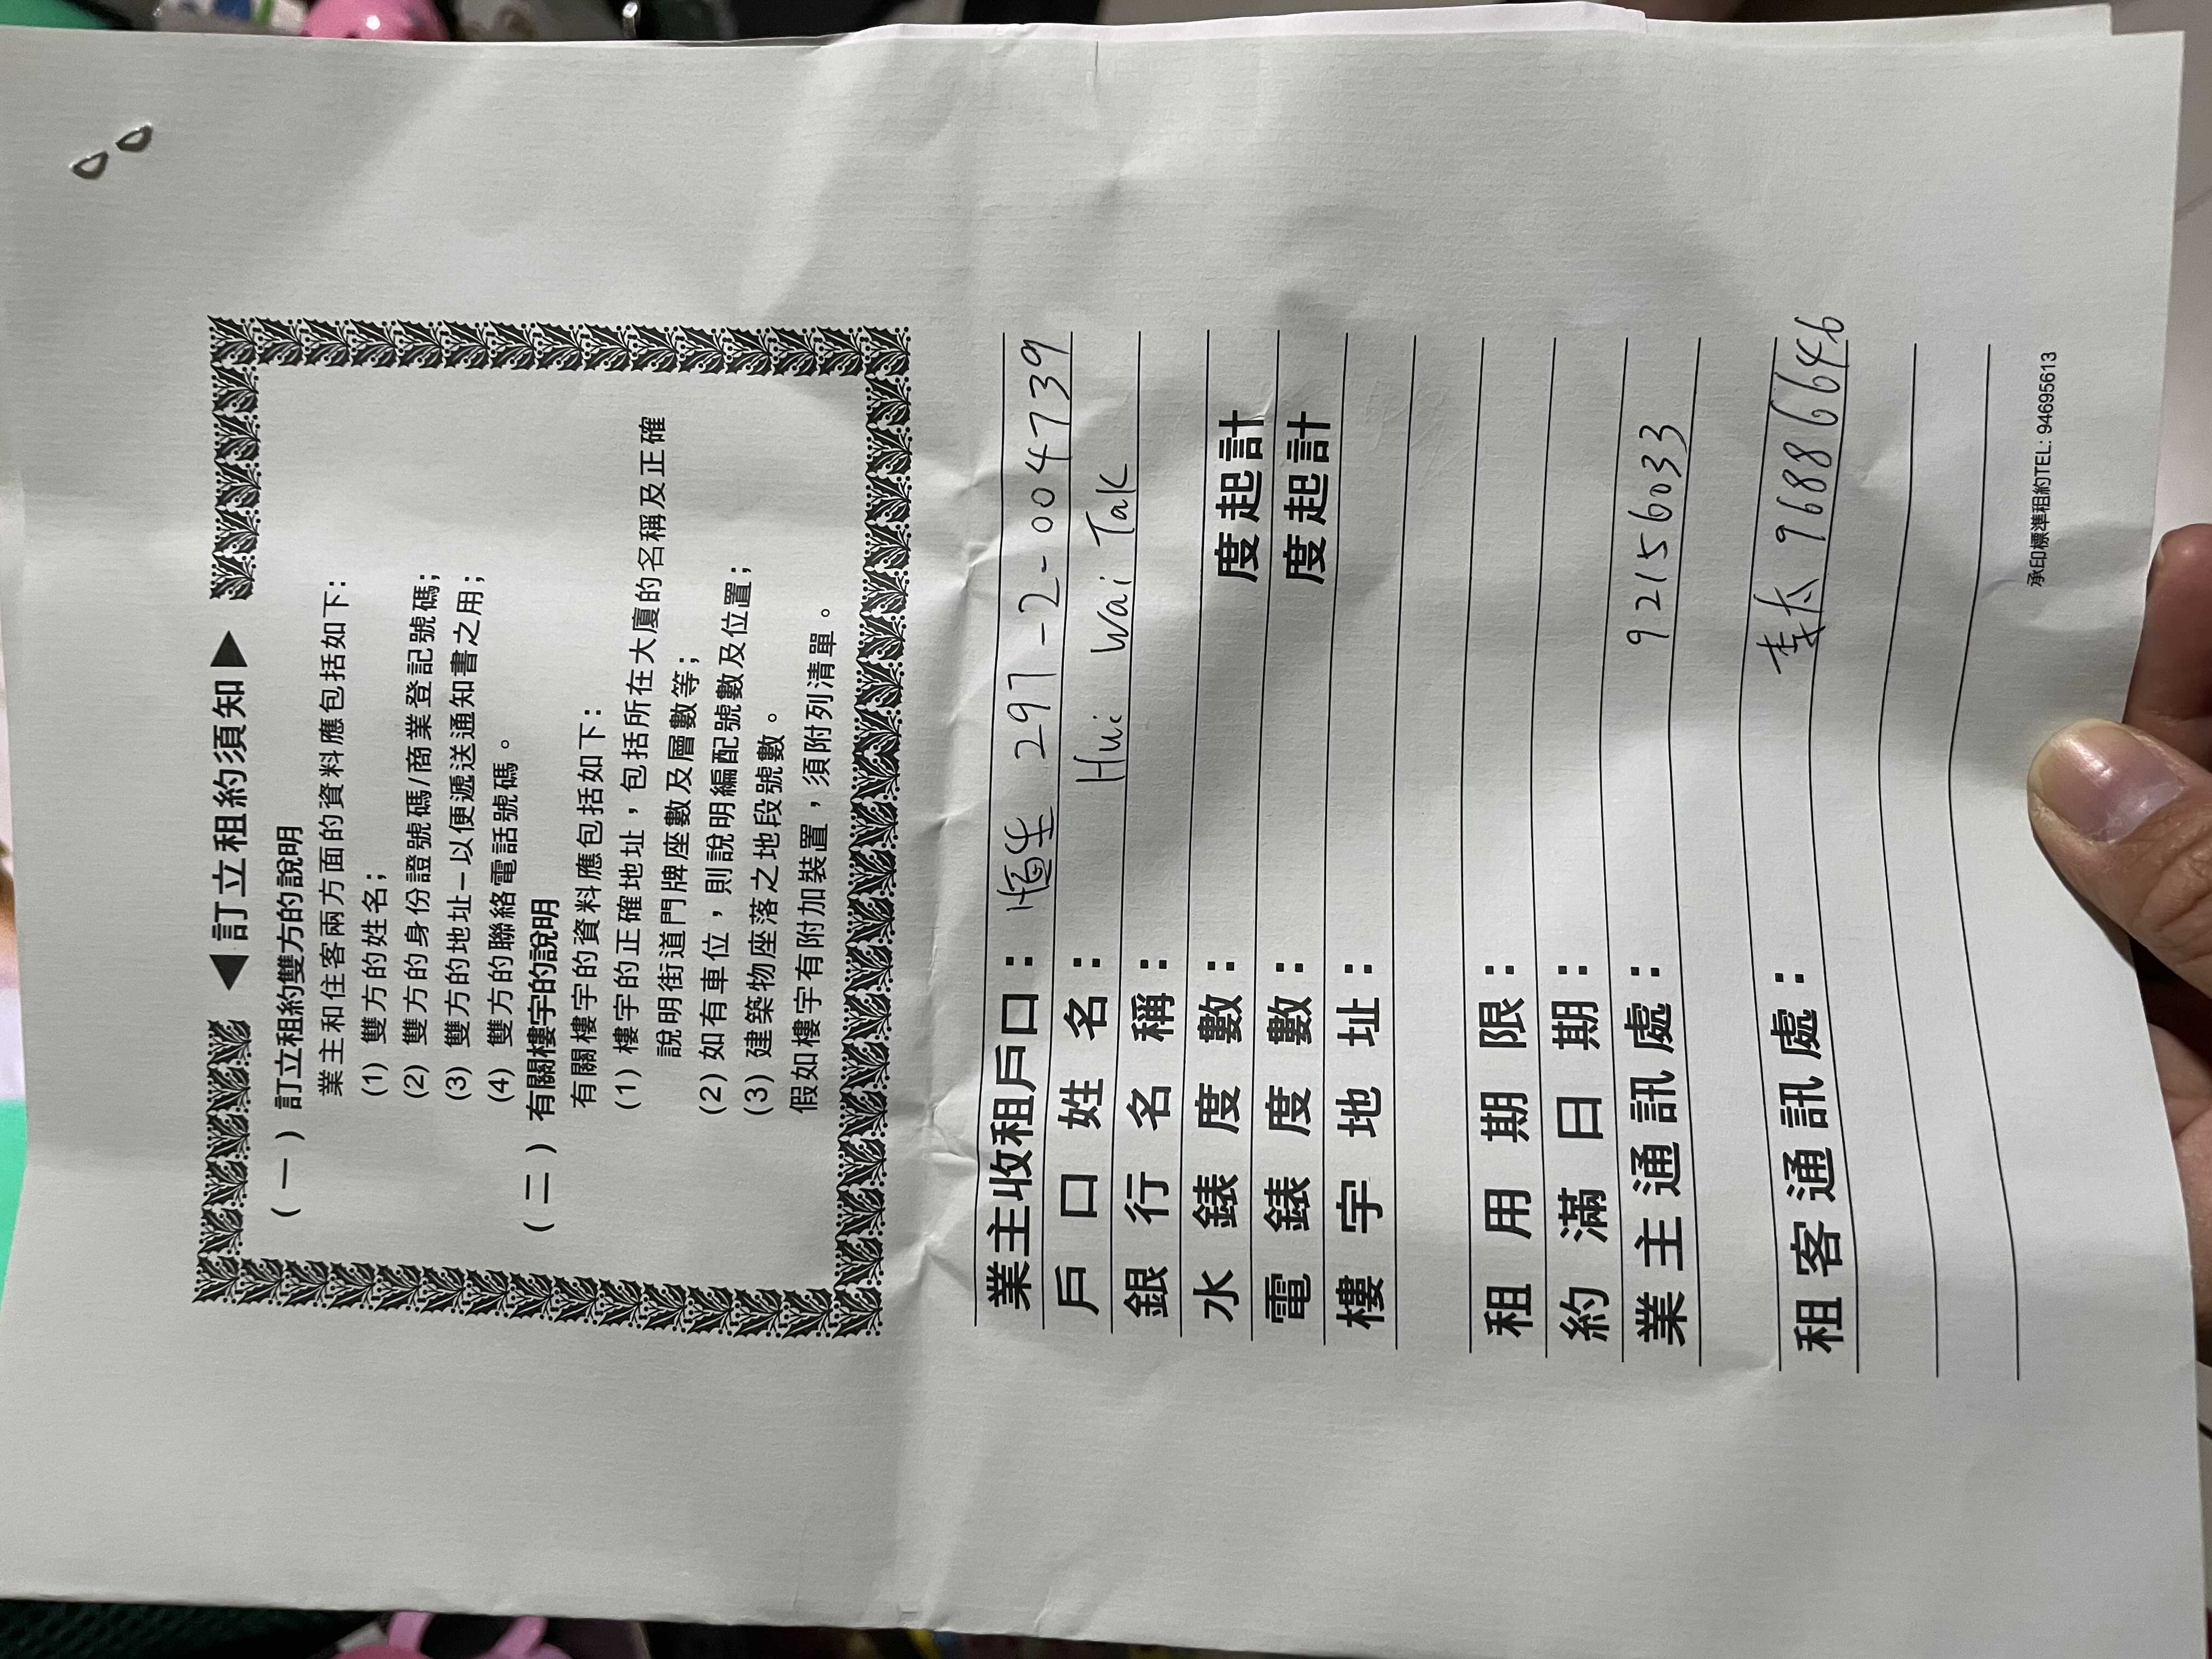 ◀訂立租約須知▶
(一) 訂立租約雙方的說明
業主和住客兩方面的資料應包括如下:
(1) 雙方的姓名;
(2) 雙方的身份證號碼/商業登記號碼;
(3) 雙方的地址－以便遞送通知書之用;
(4) 雙方的聯絡電話號碼。
(二) 有關樓宇的說明
有關樓宇的資料應包括如下:
(1) 樓宇的正確地址，包括所在大廈的名稱及正確
說明街道門牌座數及層數等;
(2) 如有車位，則說明編配號數及位置;
(3) 建築物座落之地段號數。
假如樓宇有附加裝置，須附列清單。
業主收租戶口: 恒生 297-2-004739
戶口姓名: Hui Wai Tak
銀行名稱:
水錶度數: 度起計
電錶度數: 度起計
樓宇地址:
租用期限:
約滿日期:
業主通訊處: 92156033
租客通訊處: 李太 96886646
承印標準租約TEL: 94695613